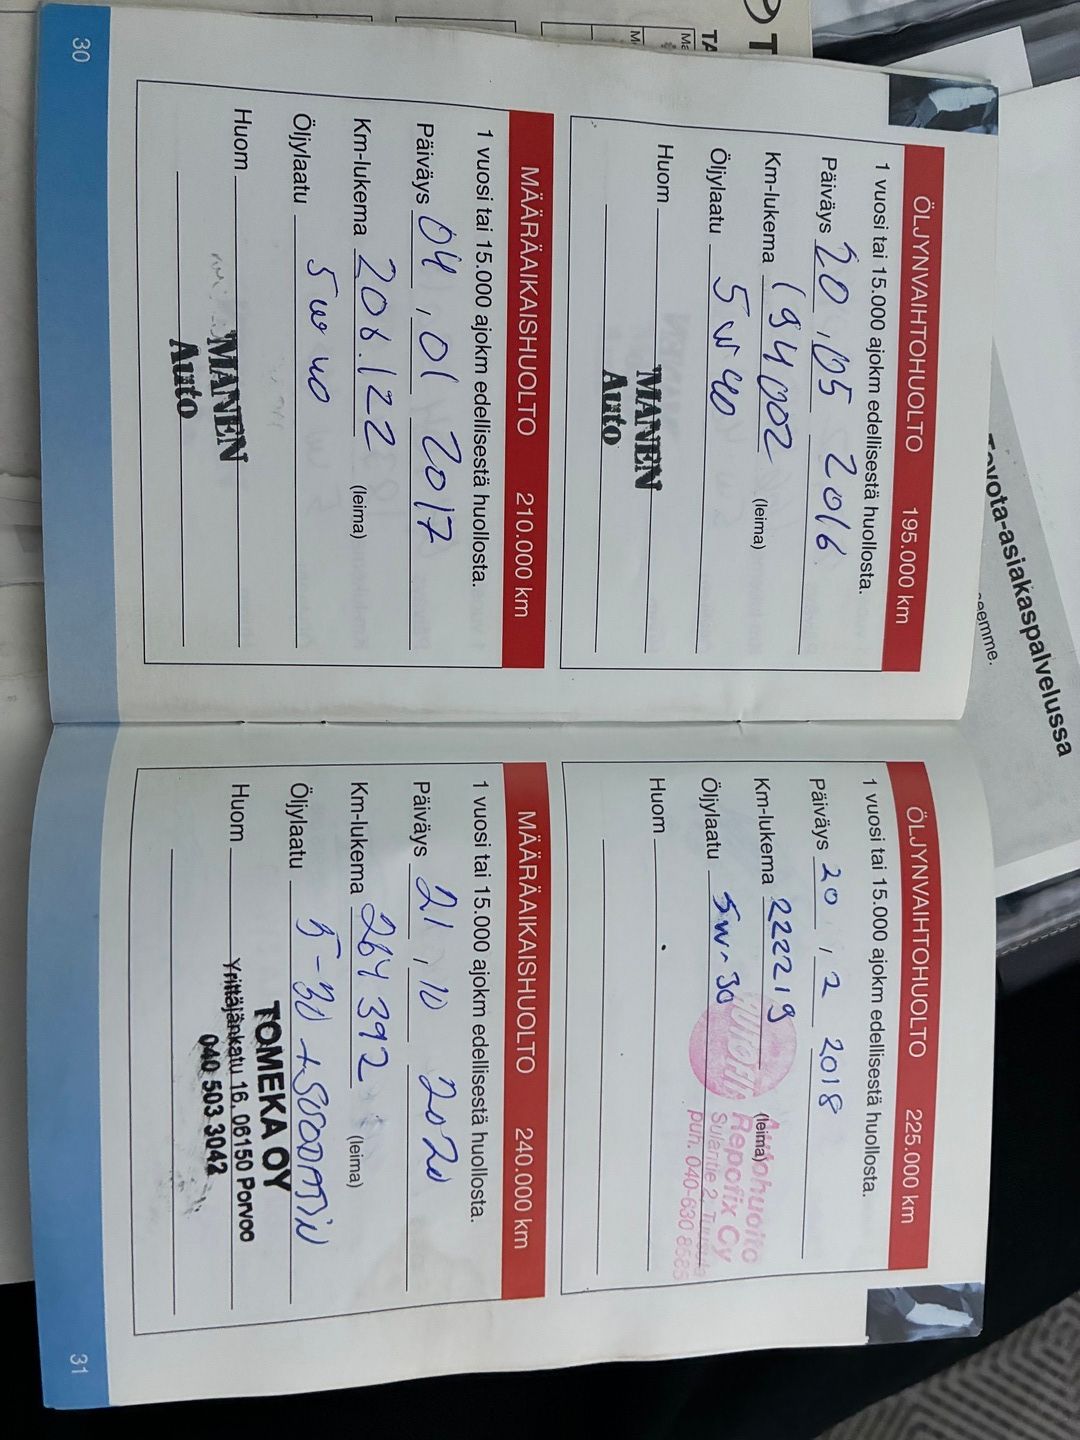 ÖLJYNVAIHTOHUOLTO 195.000 km
1 vuosi tai 15.000 ajokm edellisestä huollosta.
Päiväys 20.05 2016
Km-lukema 194002 (leima)
Öljylaatu 5W40
Huom
MANEN
Auto
MÄÄRÄAIKAISHUOLTO 210.000 km
1 vuosi tai 15.000 ajokm edellisestä huollosta.
Päiväys 04.01 2017
Km-lukema 206.122 (leima)
Öljylaatu 5w40
Huom
MANEN
Auto
30
ÖLJYNVAIHTOHUOLTO 225.000 km
1 vuosi tai 15.000 ajokm edellisestä huollosta.
Päiväys 20.2 2018
Km-lukema 222219 (leima)
Öljylaatu 5W-30
Huom
Autohuolto
Repofix Oy
Sulantie 2, Tuusula
puh. 040-630 8585
MÄÄRÄAIKAISHUOLTO 240.000 km
1 vuosi tai 15.000 ajokm edellisestä huollosta.
Päiväys 21.10 2020
Km-lukema 264392 (leima)
Öljylaatu 5-30 + SUODATIN
Huom
TOMEKA OY
Yrittäjänkatu 16, 06150 Porvoo
040 503 3042
31
Toyota-asiakaspalvelussa